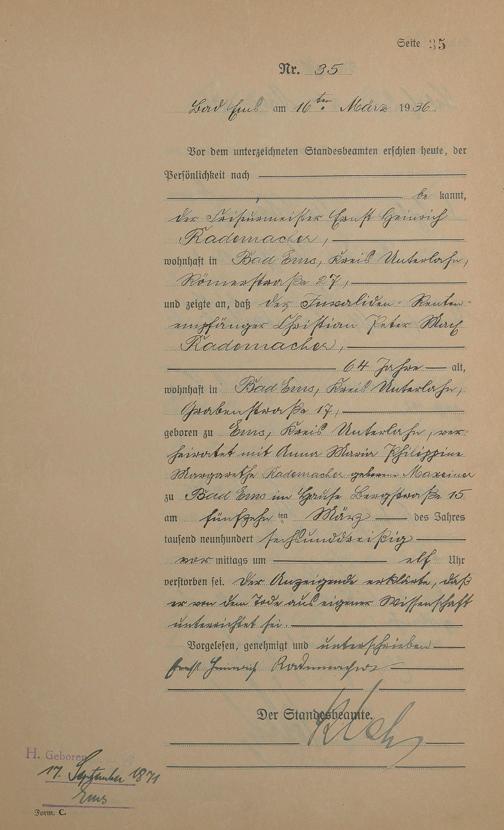 Seite 35
Nr. 35
Bad Ems am 16ten März 1936.
Vor dem unterzeichneten Standesbeamten erschien heute, der
Persönlichkeit nach
be kannt,
der Friseurmeister Ernst Heinrich
Rademacher,
wohnhaft in Bad Ems, Kreis Unterlahn,
Römerstraße 27,
und zeigte an, daß der Invaliden-Renten-
empfänger Christian Peter
Rademacher,
64 Jahre alt,
wohnhaft in Bad Ems, Kreis Unterlahn,
Grabenstraße 17,
geboren zu Ems, Kreis Unterlahn, ver-
heiratet mit Anna Maria Philippine
Margarethe Rademacher geborene Maxeiner
zu Bad Ems im Hause Bergstraße 15
am fünfzehnten März des Jahres
tausend neunhundert sechsunddreißig
vor mittags um elf Uhr
verstorben sei. Der Anzeigende erklärte, daß
er von dem Tode aus eigener Wissenschaft
unterrichtet sei.
Vorgelesen, genehmigt und unterschrieben
Ernst Heinrich Rademacher
Der Standesbeamte.
H. Geboren
17. September 1871
Ems
Form. C.